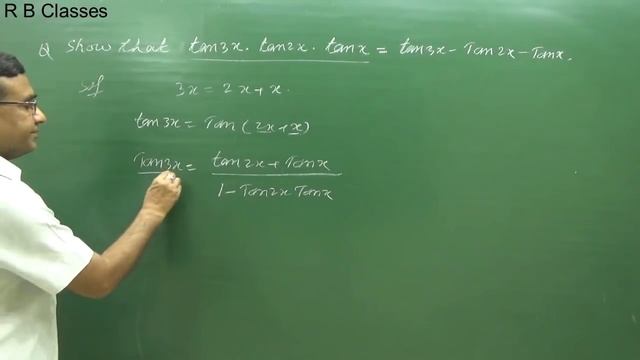 R B Classes
Q Show that tan3x · tan2x · tanx = tan3x - Tan2x - Tanx.
Sol 3x = 2x + x.
tan3x = Tan (2x + x)
Tan3x = tan2x + Tanx / 1 - Tan2x Tanx